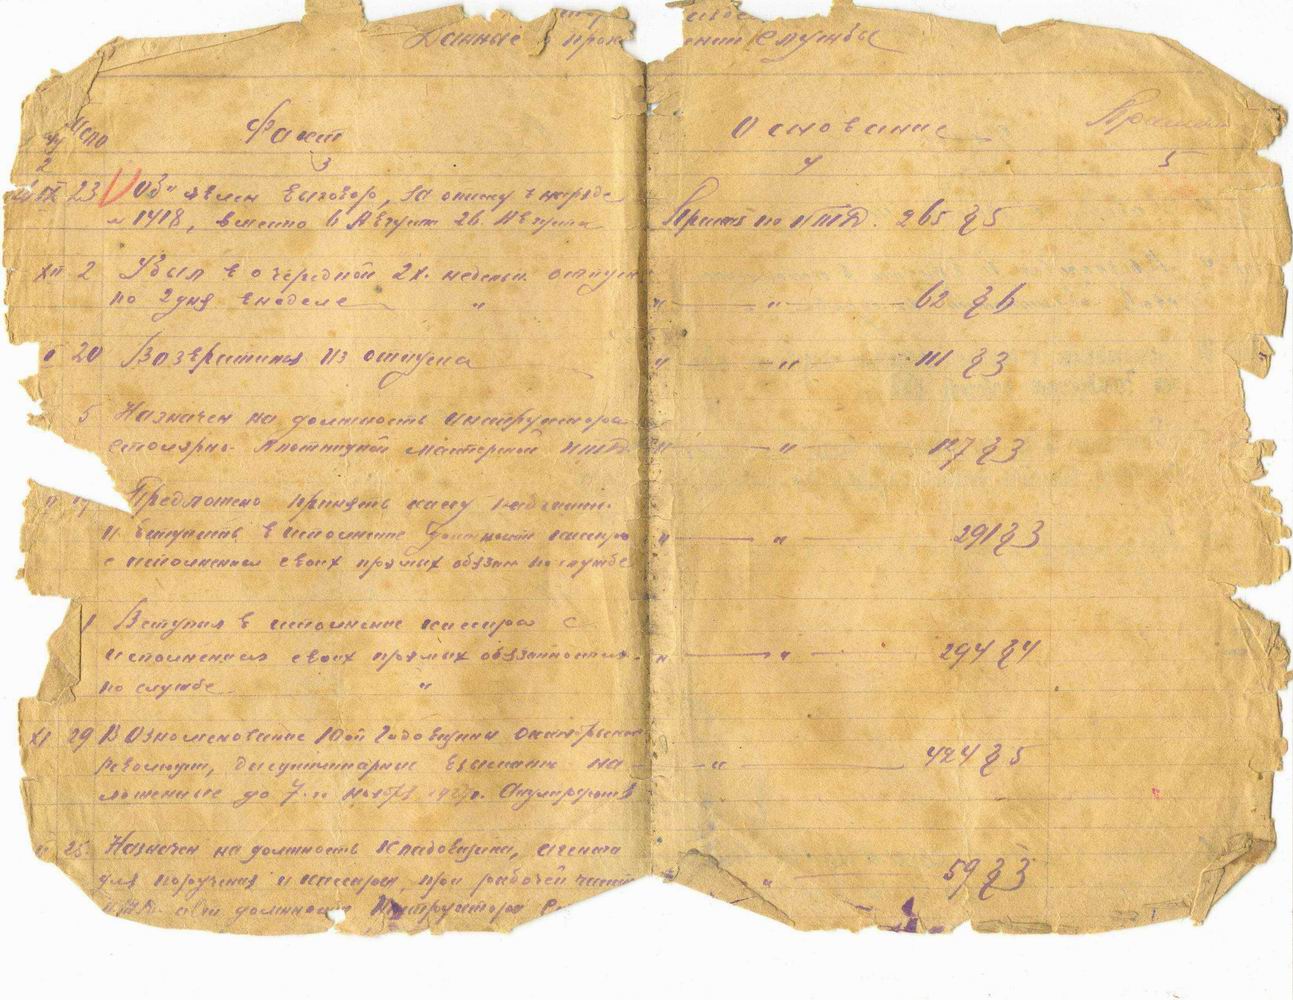 Данные о прох ении службы
число Факт Основание Примеч
2 3 4 5
IX 23 Об"явлен выговор, за описку в наряде
№ 1418, вместо 6 Августа 26 Августа Приказ по ИТД. 265 § 5
XII 2 Убыл в очередной 2х. недельн. отпуск
по 2 дня в неделе " " " 62 § 6
20 Возвратился из отпуска " " 111 § 3
5 Назначен на должность инструктора
столярно-плотницкой мастерской ИТД " " 127 § 3
Предложено принять кассу
и вступить в исполнение должности кассира " " 291 § 3
с исполнением своих прямых обязан по службе
1 Вступил в исполнение кассира с
исполнением своих прямых обязанностей " " 294 § 4
по службе "
XI 29 В Ознаменование 10ой Годовщины октябрьской
революции, дисциплинарные взыскания на " 424 § 5
ложенные до 7-го ноября 1927г. Аннулируются
25 Назначен на должность Кладовщика, агента
для поручения и кассира, при рабочей части " 59 § 3
должности Инструктора